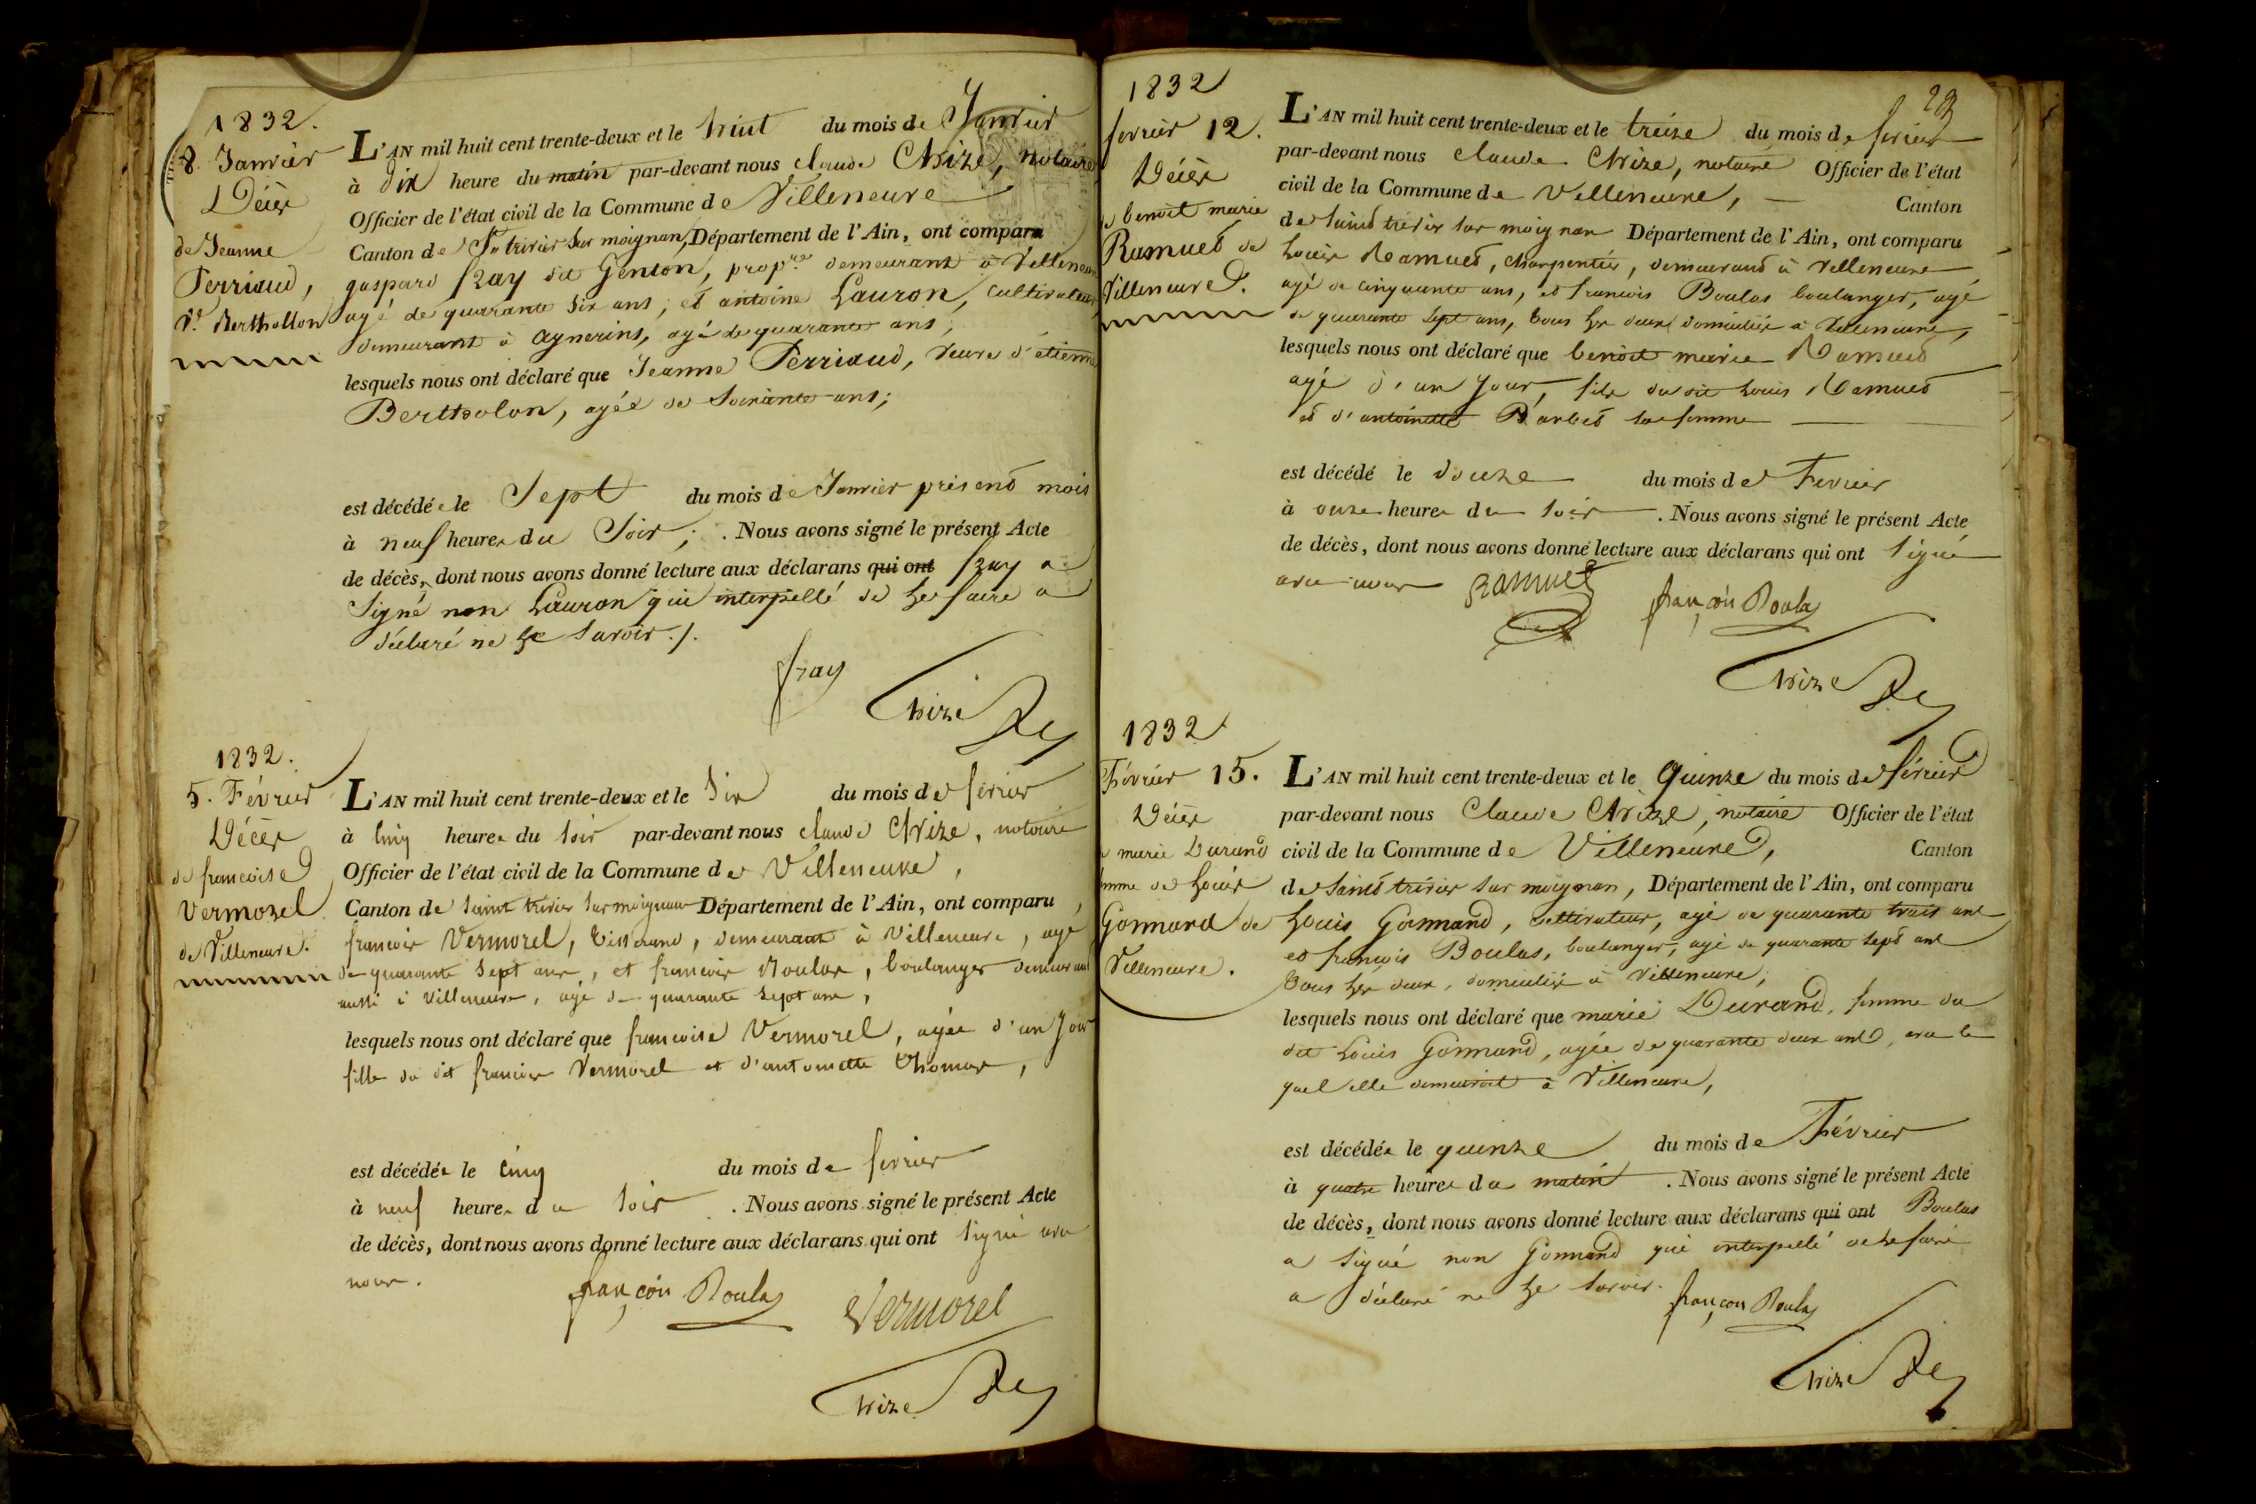 1832.
8. Janvier
Décès
de Jeanne
Perriaud,
Ve. Berthollon
L'AN mil huit cent trente-deux et le huit du mois de Janvier
à dix heure du matin par-devant nous claude Chize, notaire
Officier de l'état civil de la Commune de Villeneuve
Canton de St trivier sur moignan, Département de l'Ain, ont comparu
gaspard fray dit Genton, propre. demeurant à Villeneuve
agé de quarante six ans, et antoine Lauron, cultivateur
demeurant à agnerins, agé de quarante ans,
lesquels nous ont déclaré que Jeanne Perriaud, veuve d'etienne
Bertholon, agée de soixante ans;
est décédée le Sept du mois de Janvier présent mois
à neuf heures du Soir; . Nous avons signé le présent Acte
de décès, dont nous avons donné lecture aux déclarans qui ont fray a
Signé non Lauron qui interpellé de le faire a
déclaré ne le savoir ./.
fray
Chize
1832.
5. Février
Décès
de francoise
Vermorel
de Villeneuve.
L'AN mil huit cent trente-deux et le six du mois de février
à cinq heures du soir par-devant nous claude Chize, notaire
Officier de l'état civil de la Commune de Villeneuve,
Canton de saint trivier sur moignan Département de l'Ain, ont comparu,
francois Vermorel, tisserand, demeurant à Villeneuve, agé
de quarante sept ans, et francois Boulas, boulanger demeurant
aussi à Villeneuve, agé de quarante sept ans,
lesquels nous ont déclaré que francoise Vermorel, agée d'un jour
fille du dit francois Vermorel et d'antoinette Thomas,
est décédée le cinq du mois de fevrier
à neuf heures du soir . Nous avons signé le présent Acte
de décès, dont nous avons donné lecture aux déclarans qui ont signé avec
nous.
françois Boulas Vermorel
Chize
1832
fevrier 12.
Décès
de benoit marie
Ramuet de
Villeneuve.
L'AN mil huit cent trente-deux et le treize du mois de fevrier
par-devant nous claude Chize, notaire Officier de l'état
civil de la Commune de Villeneuve, Canton
de saint trivier sur moignan Département de l'Ain, ont comparu
Louis Ramuet, charpentier, demeurant à Villeneuve
agé de cinquante ans, et francois Boulas boulanger, agé
de quarante sept ans, tous les deux domiciliés à Villeneuve,
lesquels nous ont déclaré que benoit marie Ramuet
agé d'un jour, fils du dit Louis Ramuet
et d'antoinette Barbet sa femme
est décédé le douze du mois de Fevrier
à onze heures du soir . Nous avons signé le présent Acte
de décès, dont nous avons donné lecture aux déclarans qui ont signé
avec nous Ramuet françois Boulas
Chize
1832
Février 15.
Décès
de marie Durand
femme de Louis
Gonnard de
Villeneuve.
L'AN mil huit cent trente-deux et le Quinze du mois de février
par-devant nous Claude Chize, notaire Officier de l'état
civil de la Commune de Villeneuve, Canton
de saint trivier sur moignan, Département de l'Ain, ont comparu
Louis Gonnand, cultivateur, agé de quarante trois ans
et francois Boulas, boulanger, agé de quarante sept ans
tous les deux, domiciliés à Villeneuve,
lesquels nous ont déclaré que marie Durand, femme du
dit Louis Gonnand, agée de quarante deux ans, avec le
quel elle demeuroit à Villeneuve,
est décédée le quinze du mois de Février
à quatre heures du matin . Nous avons signé le présent Acte
de décès, dont nous avons donné lecture aux déclarans qui ont Boulas
a signé non Gonnand qui interpellé de le faire
a déclaré ne le savoir. françois Boulas
Chize